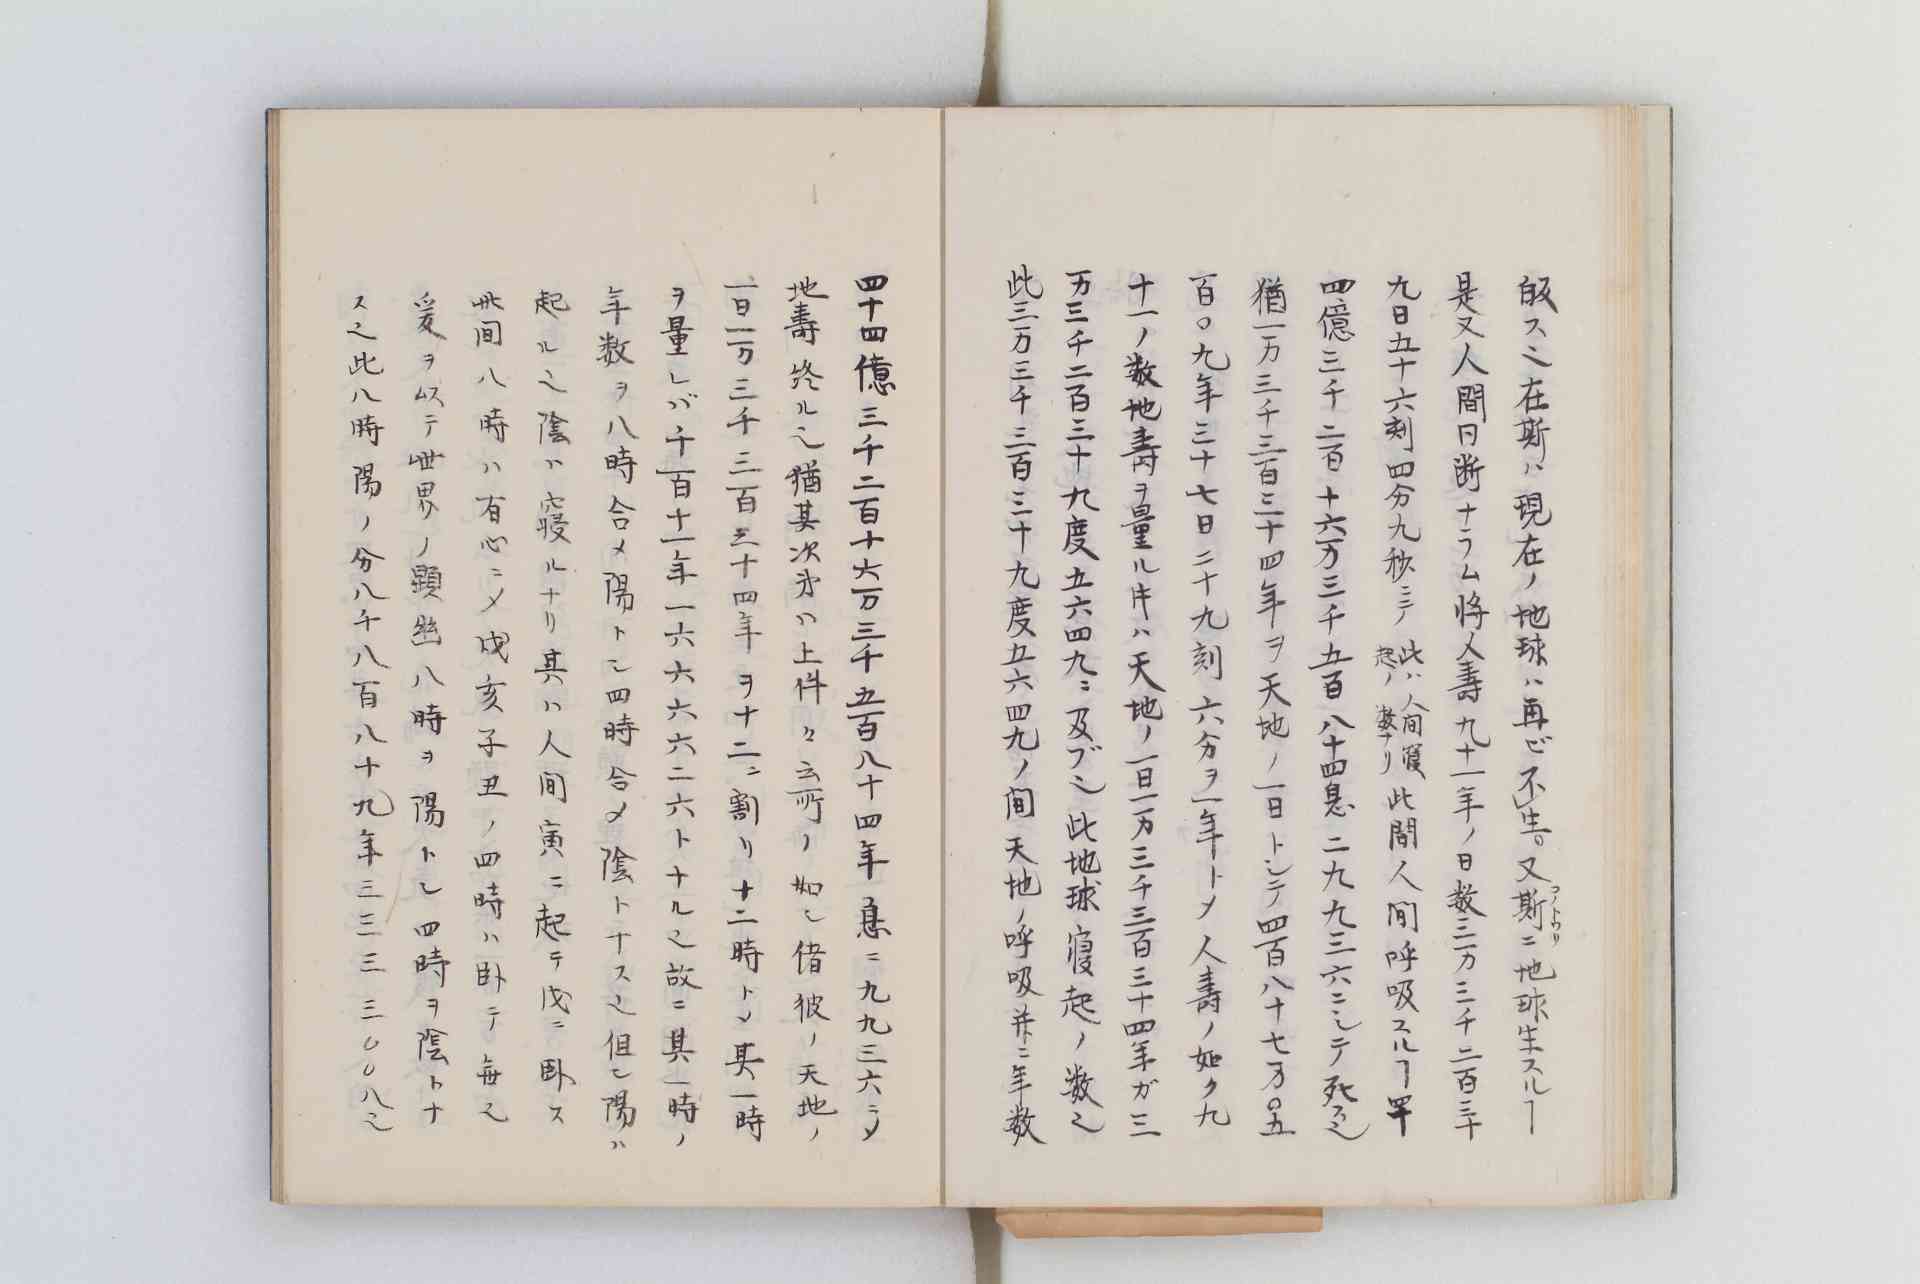 皈スヿ在斯ハ現在ノ地球ハ再ビ不生。又斯コノトウリニ地球生スルヿ
是又人間日断ナラム将人壽九十一年ノ日数三万三千二百三十
九日五十六刻四分九秒ニテ此ハ人間寝起ノ数ナリ此間人間呼吸スルヿ四十
四億三千二百十六万三千五百八十四息二九九三六ニシテ死ス也
猶一万三千三百三十四年ヲ天地ノ一日トシテ四百八十七万〇五
百〇九年三十七日二十九刻六分ヲ一年トメ人壽ノ如ク九
十一ノ数地壽ヲ量ル片ハ天地ノ一日一万三千三百三十四年ガ三
万三千二百三十九度五六四九ニ及ブ也此地球寝起ノ数也
此三万三千三百三十九度五六四九ノ間天地ノ呼吸并ニ年数
四十四億三千二百十六万三千五百八十四年息ニ九九三六ニメ
地壽終ル也猶其次第ハ上件々云所ノ如シ偖彼ノ天地ノ
一日一万三千三百三十四年ヲ十二ニ割リ十二時トメ其一時
ヲ量レバ千一百十一年一六六六六二六トナル也故ニ其一時ノ
年数ヲ八時合メ陽トシ四時合メ陰トナス也但シ陽ハ
起ル也陰ハ寝ルナリ其ハ人間寅ニ起テ戌ニ臥ス
此間八時ハ有心ニメ戌亥子丑ノ四時ハ臥テ無也
爰ヲ以テ世界ノ顕幽八時ヲ陽トシ四時ヲ陰トナ
ス也此八時陽ノ分八千八百八十九年三三三三〇〇八也